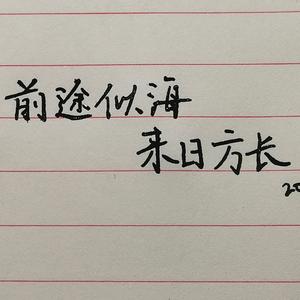 前途似海
来日方长
20